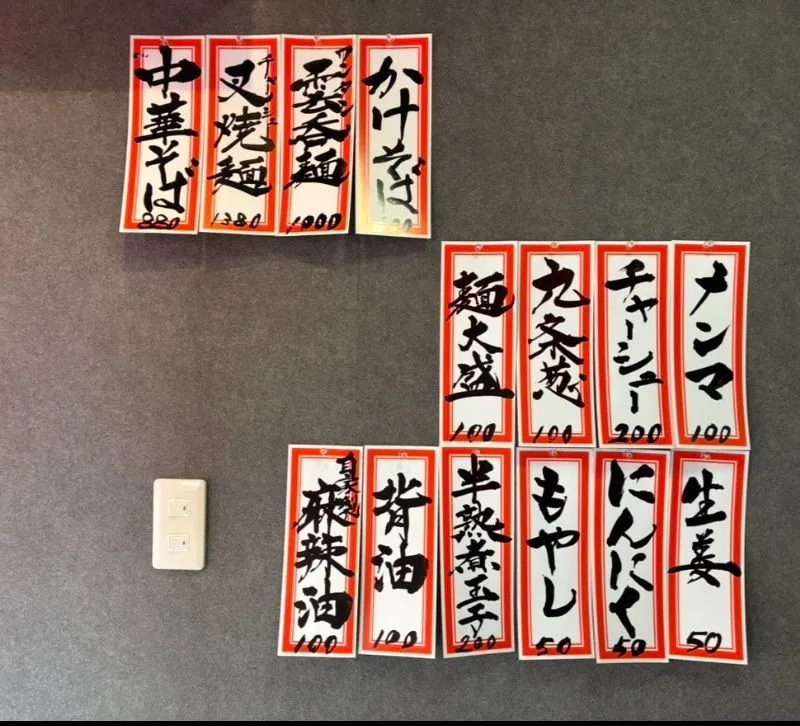 かけそば
ワンタン
雲呑麺
1000
チャーシュー
叉焼麺
1380
中華そば
880
メンマ
100
チャーシュー
200
九条葱
100
麺大盛
100
生姜
50
にんにく
50
もやし
50
半熟煮玉子
200
背油
100
自家製
麻辣油
100